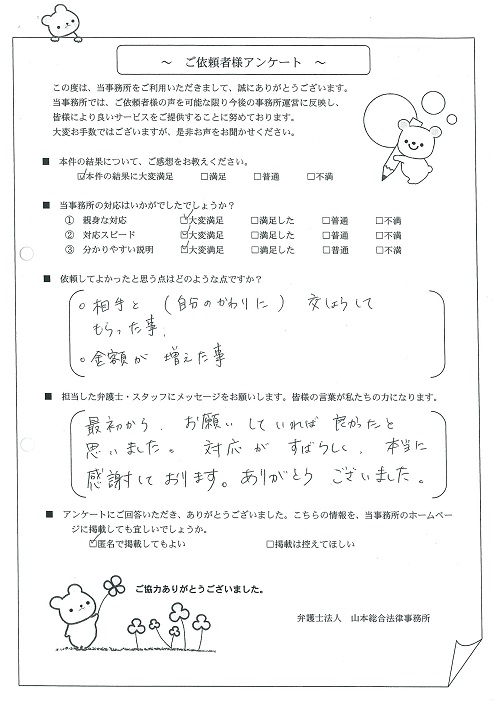 ～ ご依頼者様アンケート ～
この度は、当事務所をご利用いただきまして、誠にありがとうございます。
当事務所では、ご依頼者様の声を可能な限り今後の事務所運営に反映し、
皆様により良いサービスをご提供することに努めております。
大変お手数ではございますが、是非お声をお聞かせください。
■ 本件の結果について、ご感想をお教えください。
☑本件の結果に大変満足 □満足 □普通 □不満
■ 当事務所の対応はいかがでしたでしょうか？
① 親身な対応 ☑大変満足 □満足した □普通 □不満
② 対応スピード ☑大変満足 □満足した □普通 □不満
③ 分かりやすい説明 ☑大変満足 □満足した □普通 □不満
■ 依頼してよかったと思う点はどのような点ですか？
○相手と （自分のかわりに） 交しょうして
もらった事.
○金額が 増えた事
■ 担当した弁護士・スタッフにメッセージをお願いします。皆様の言葉が私たちの力になります。
最初から、お願いしていれば良かったと
思いました。 対応が すばらしく、本当に
感謝しております。ありがとう ございました。
■ アンケートにご回答いただき、ありがとうございました。こちらの情報を、当事務所のホームペー
ジに掲載しても宜しいでしょうか。
☑匿名で掲載してもよい □掲載は控えてほしい
ご協力ありがとうございました。
弁護士法人 山本総合法律事務所